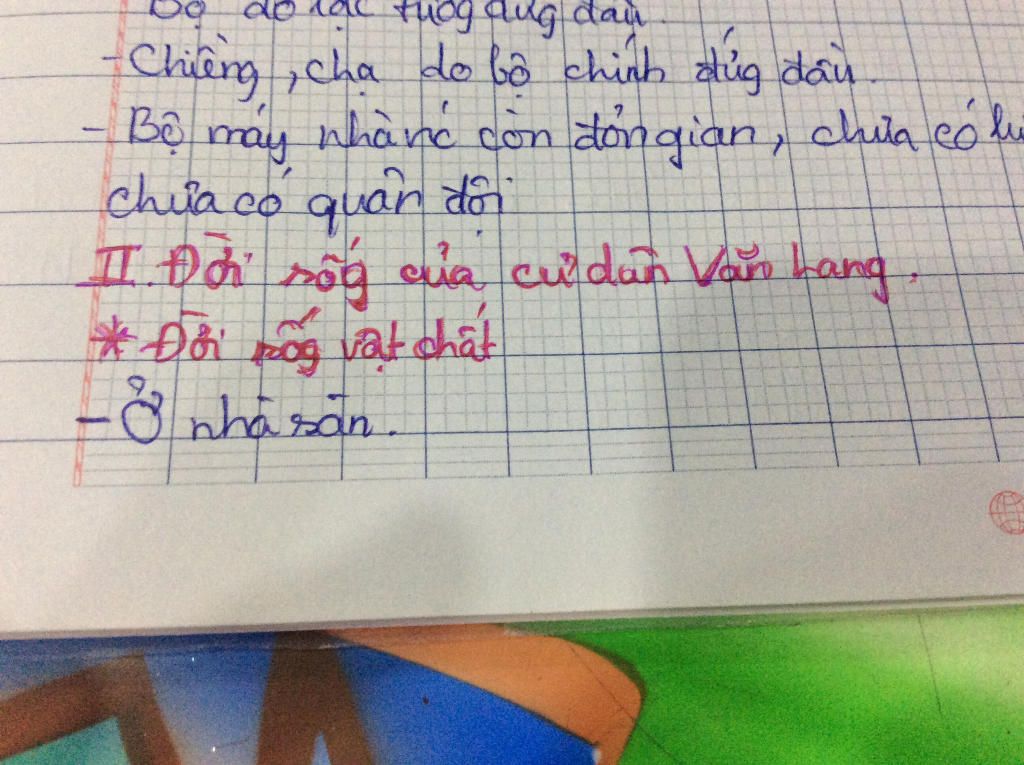 Bộ do lạc tướg đứg đầu
- Chiềng, chạ do bồ chính đứg đầu.
- Bộ máy nhà nc còn đơn giản, chưa có
chưa có quân đội
II. Đời sốg của cư dân Văn Lang.
* Đời sốg vật chất
- Ở nhà sàn.